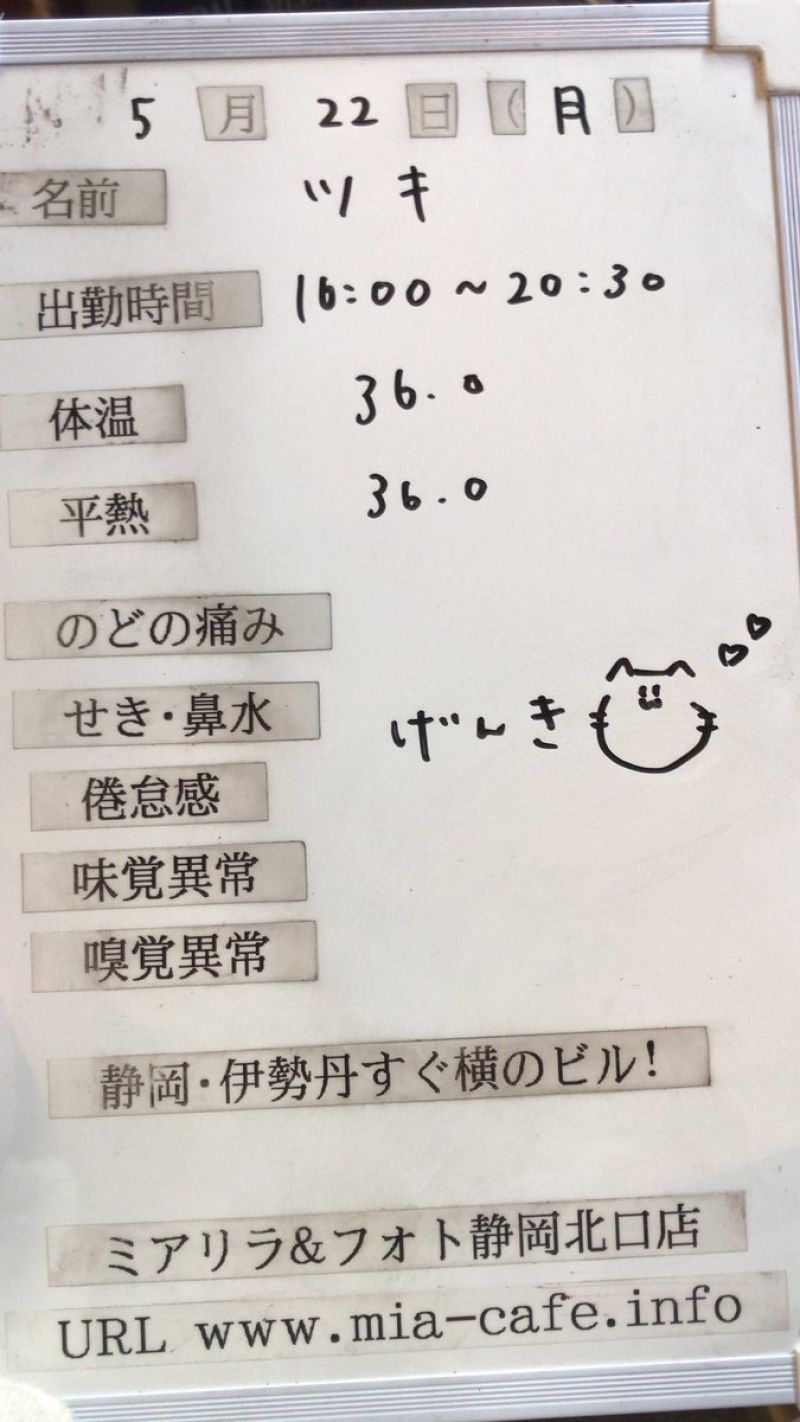 5月22日(月)
名前 ツキ
出勤時間 16:00~20:30
体温 36.0
平熱 36.0
のどの痛み
せき・鼻水 げんき
倦怠感
味覚異常
嗅覚異常
静岡・伊勢丹すぐ横のビル!
ミアリラ&フォト静岡北口店
URL www.mia-cafe.info